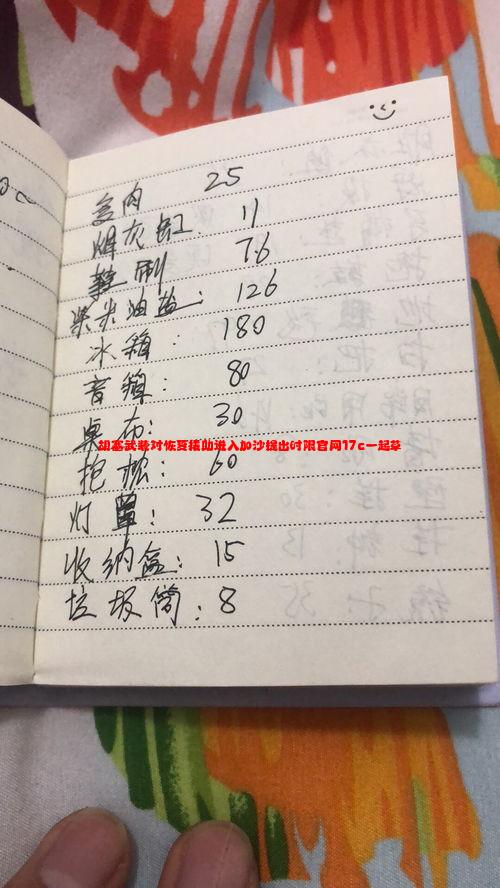 盒肉 25
烟灰缸: 11
鞋刷 76
柴米油盐: 126
冰箱: 180
音箱: 80
桌布: 30
胡塞武装对恢复援助进入加沙提出时限官网17c一起草
抱枕: 60
灯罩: 32
收纳盒: 15
垃圾筒: 8